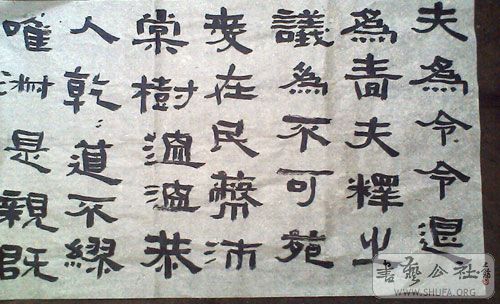 夫為令令退
為嗇夫釋之
議為不可苑
愛在民蔽沛
棠樹溫溫恭
人乾〻道不繆
唯淑是親既
書藝公社
WWW.SHUFA.ORG